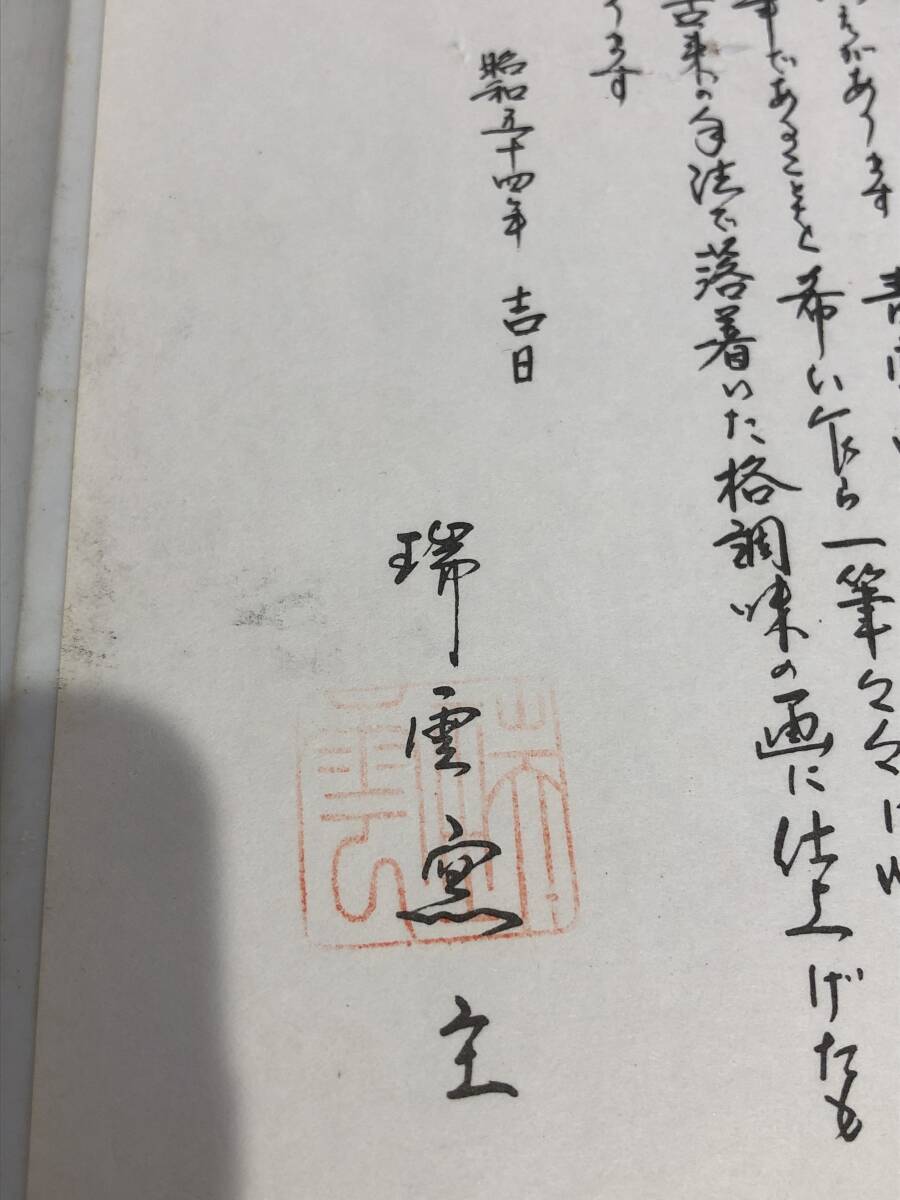 があります
であることを希い乍ら一筆々々に
古来の手法で落着いた格調味の画に仕上げたも
ります
昭和五十四年 吉日
瑞雲窯主